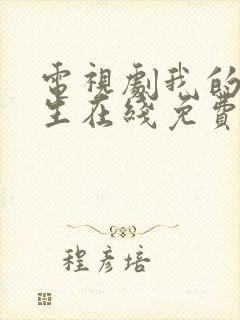 電視劇我的
生在綫免費
程彥培